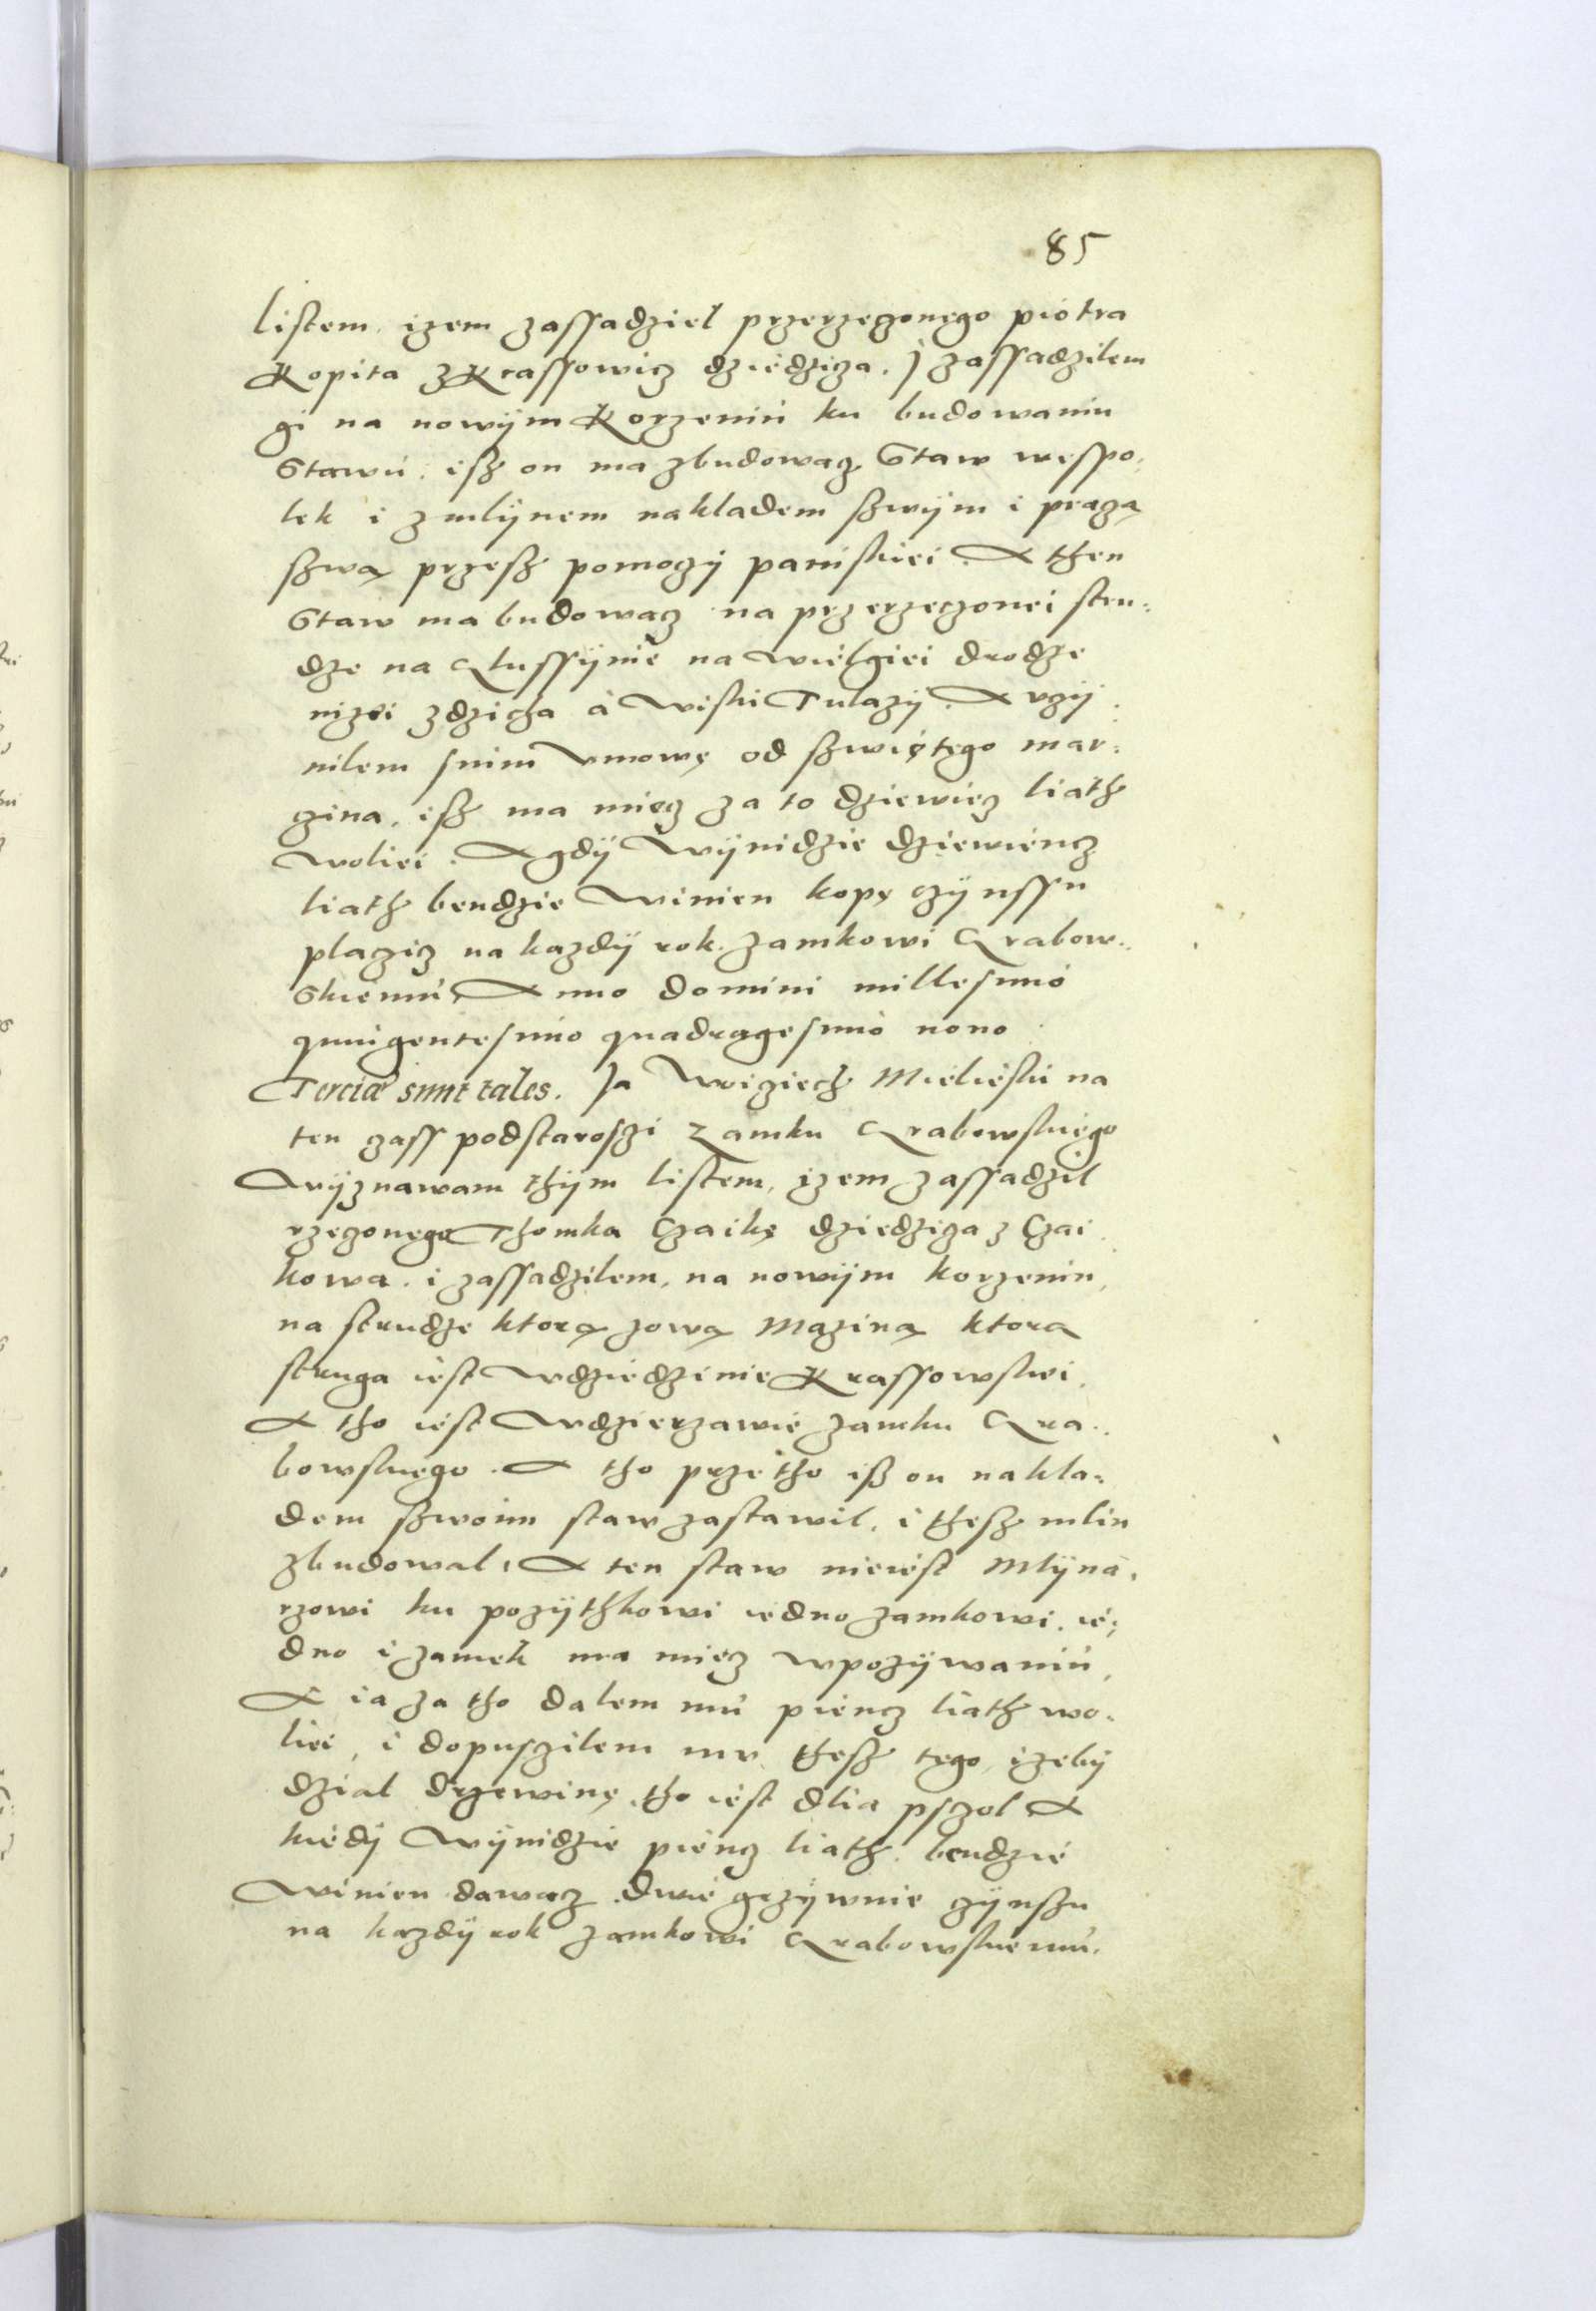 85
listem. izem zassadziel przerzeczonego piotra
Kopita z Krassowicz dziedzicza. J zassadzilem
gi na nowÿm Korzeniu ku budowaniu
Stawu. isz on ma zbudowacz Staw wespo-
lek i z mlÿnem nakladem szwÿm i praczą
szwą przesz pomoczÿ paniskiei. A then
Staw ma budowacz na przerzeczonei stru-
dze na Glussÿnie na wielgiei drodze
nizei zdzicha a Wiski Tulazÿ. A vczÿ
nilem snim vmowę od szwiętego mar-
czina, isz ma miecz za to dziewiecz liath
woliei. A gdÿ wÿnidzie dziewiencz
liath bendzie winien kopę czÿnssu
placzicz na kazdÿ rok. zamkowi Grabow-
skiemu, Anno domini millesimo
quingentesimo quadragesimo nono
Terciæ sunt tales. Ja Woicziech Mieleski na
ten czass podstaroszi zamku Grabowskiego
Wÿznawam thÿm listem, izem zassadzil
rzeczonego Thomka Czaikę dziedzicza z Czai
kowa. i zassadzilem, na nowÿm korzeniu,
na strudze ktorą zową Mazina ktora
struga iest wdziedzinie Krassowskiei,
A tho iest wdzierzawie zamku Gra-
bowskiego. A tho przetho isz on nakla-
dem szwoim staw zastawil, i thesz mlin
zbudowal, A ten staw nieiest Mlÿna-
rzowi ku pozÿthkowi iedno zamkowi. ie-
dno i zamek ma miecz wpozÿwaniu,
A ia za tho dalem mu piencz liath wo-
liei, i dopuszilem mv thesz tego izebÿ
dzial drzewinę, tho iest dlia pszol A
kiedÿ wÿnidzie piencz liath. bendzie
winien dawacz. dwie grzÿwnie czÿnszu
na kazdÿ rok zamkowi Grabowskiemu.